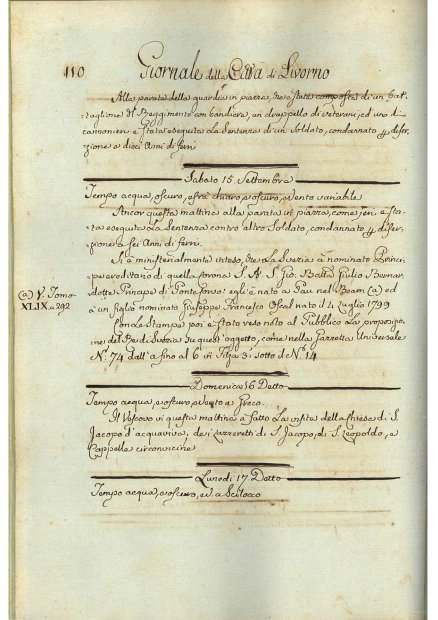 110 Giornale della Città di Livorno
Alla parata della guardia in piazza, che è stata composta di un bat-
taglione del Reggimento con bandiera, un drappello di veterani, ed uno di
cannonieri è stata eseguita la Sentenza di un Soldato, condannato p diser-
zione a dieci Anni di ferri
Sabato 15. Settembre
Tempo acqua, oscuro, e fra chiaro, e oscuro, e vento variabile
Ancor questa mattina alla parata in piazza, come jeri è sta-
ta eseguita La Sentenza contro altro Soldato, condannato p diser-
zione a sei Anni di ferri.
Si è ministerialmente inteso, che La Svezia à nominato Princi-
pe ereditario di quella corona S. A. S. Gio: Batta Giulio Bernar-
dotte Principe di Ponte Corvo: egli è nato a Pau nel Bearn (a) ed
(a) V. Tomo
XLIX. a 292
à un figlio nominato Giuseppe Francesco Oscal nato il 4 Luglio 1799
Con La Stampa poi è stato reso noto al Pubblico La proposizio-
ne del Re di Svezia su quest'oggetto, come nella Gazzetta Universale
N.º 74 dall'a fino al 6 in Filza 3: sotto il N.º 14
Domenica 16 Detto
Tempo acqua, e oscuro, e vento a Greco.
Il Vescovo in questa mattina à fatto La visita della Chiesa di S.
Jacopo d'acquaviva, dei Lazzeretti di S. Jacopo, di S. Leopoldo, e
Cappelle circonvicine
Lunedì 17. Detto
Tempo acqua, e oscuro, ed a Scilocco